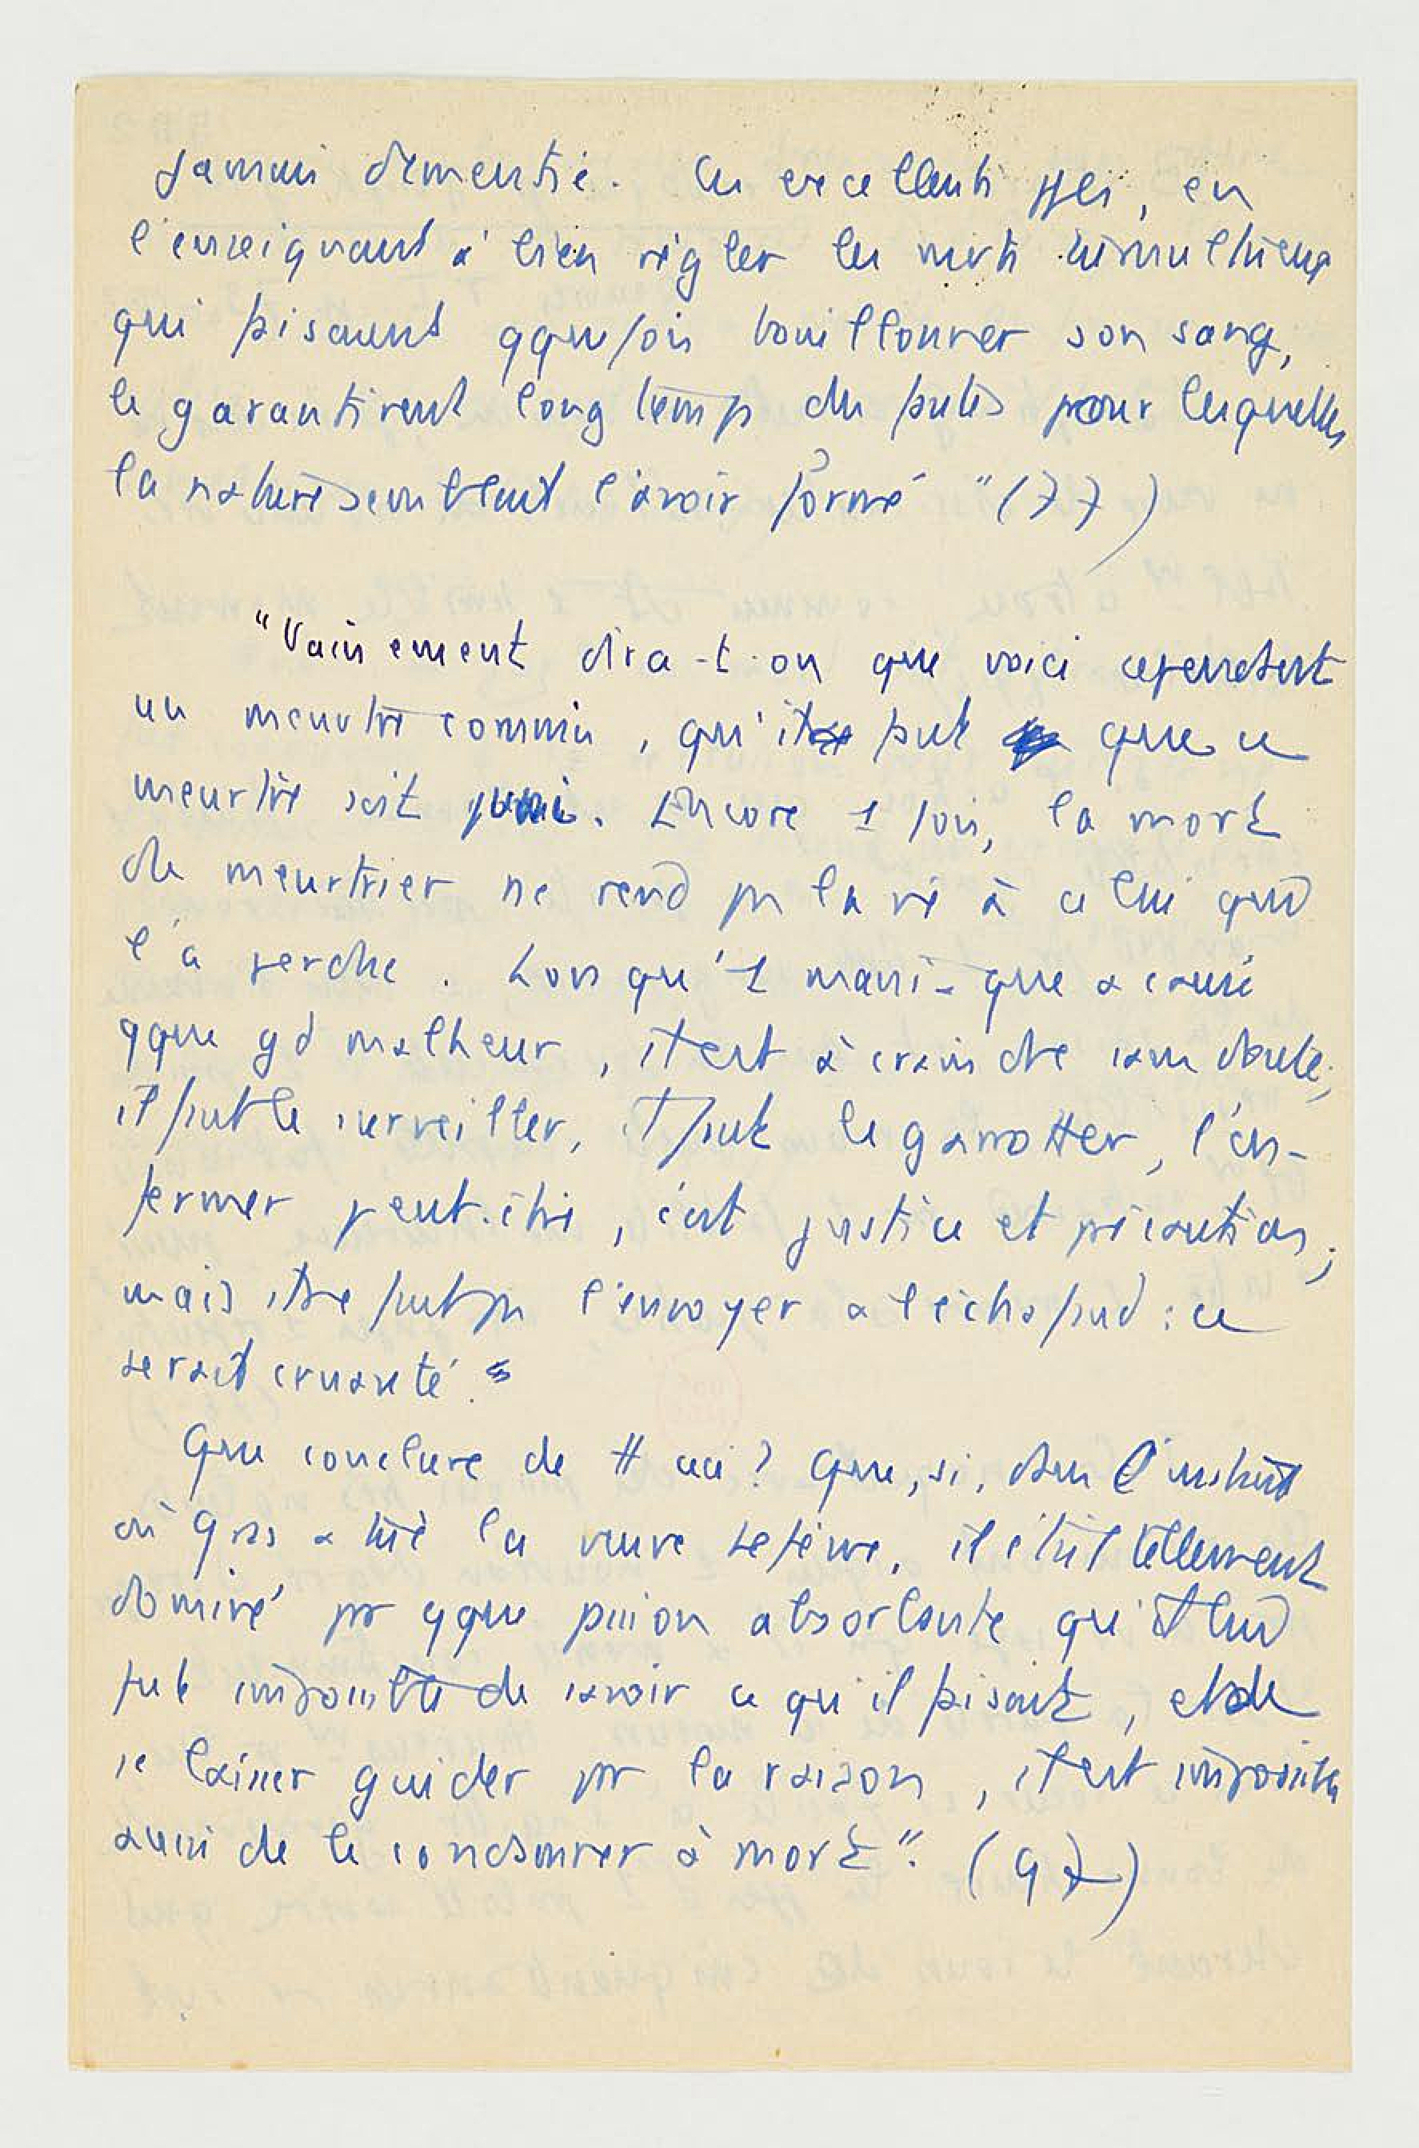 jamais démentie. Ces excellents pples, en
l'enseignant à bien régler les mvts tumultueux
qui faisaient qquefois bouillonner son sang,
le garantirent longtemps des fautes pour lesquelles
la nature semblait l'avoir formé " (77)
"Vainement dira-t-on que voici cependant
un meurtre commis, qu'il faut que ce
meurtre soit puni. Encore 1 fois, la mort
du meurtrier ne rend pas la vie à celui qui
l'a perdue. Lorsqu'1 maniaque a causé
qque gd malheur, il est à craindre sans doute;
il faut le surveiller, il faut le garrotter, l'en-
fermer peut-être, c'est justice et précaution;
mais il ne faut pas l'envoyer à l'échafaud : ce
serait cruauté."
Que conclure de tt ceci ? Que, si, dans l'instant
où Gras a tué la veuve Lefèvre, il était tellement
dominé par qque passion absorbante qu'il lui
fut impossible de savoir ce qu'il faisait, et de
se laisser guider par la raison, il est impossible
aussi de le condamner à mort". (97)